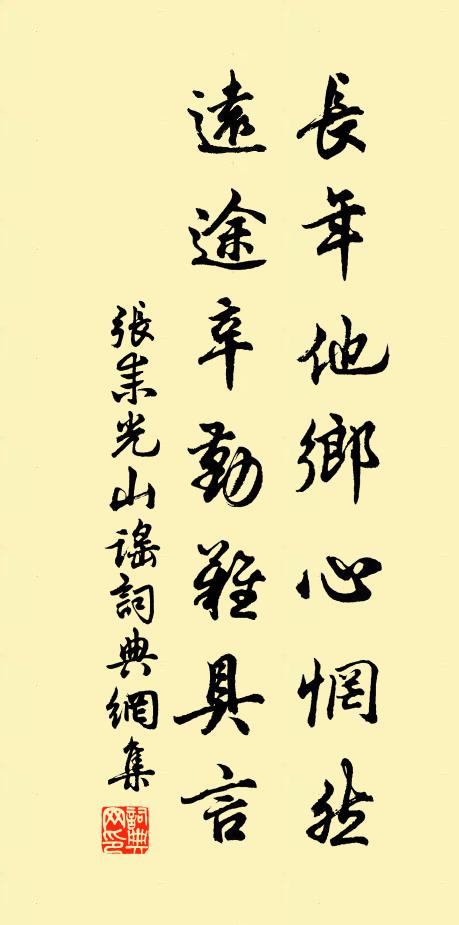 長年他鄉心惘然
遠途辛勤難具言
張耒光山謠詞典網集
詞典網印